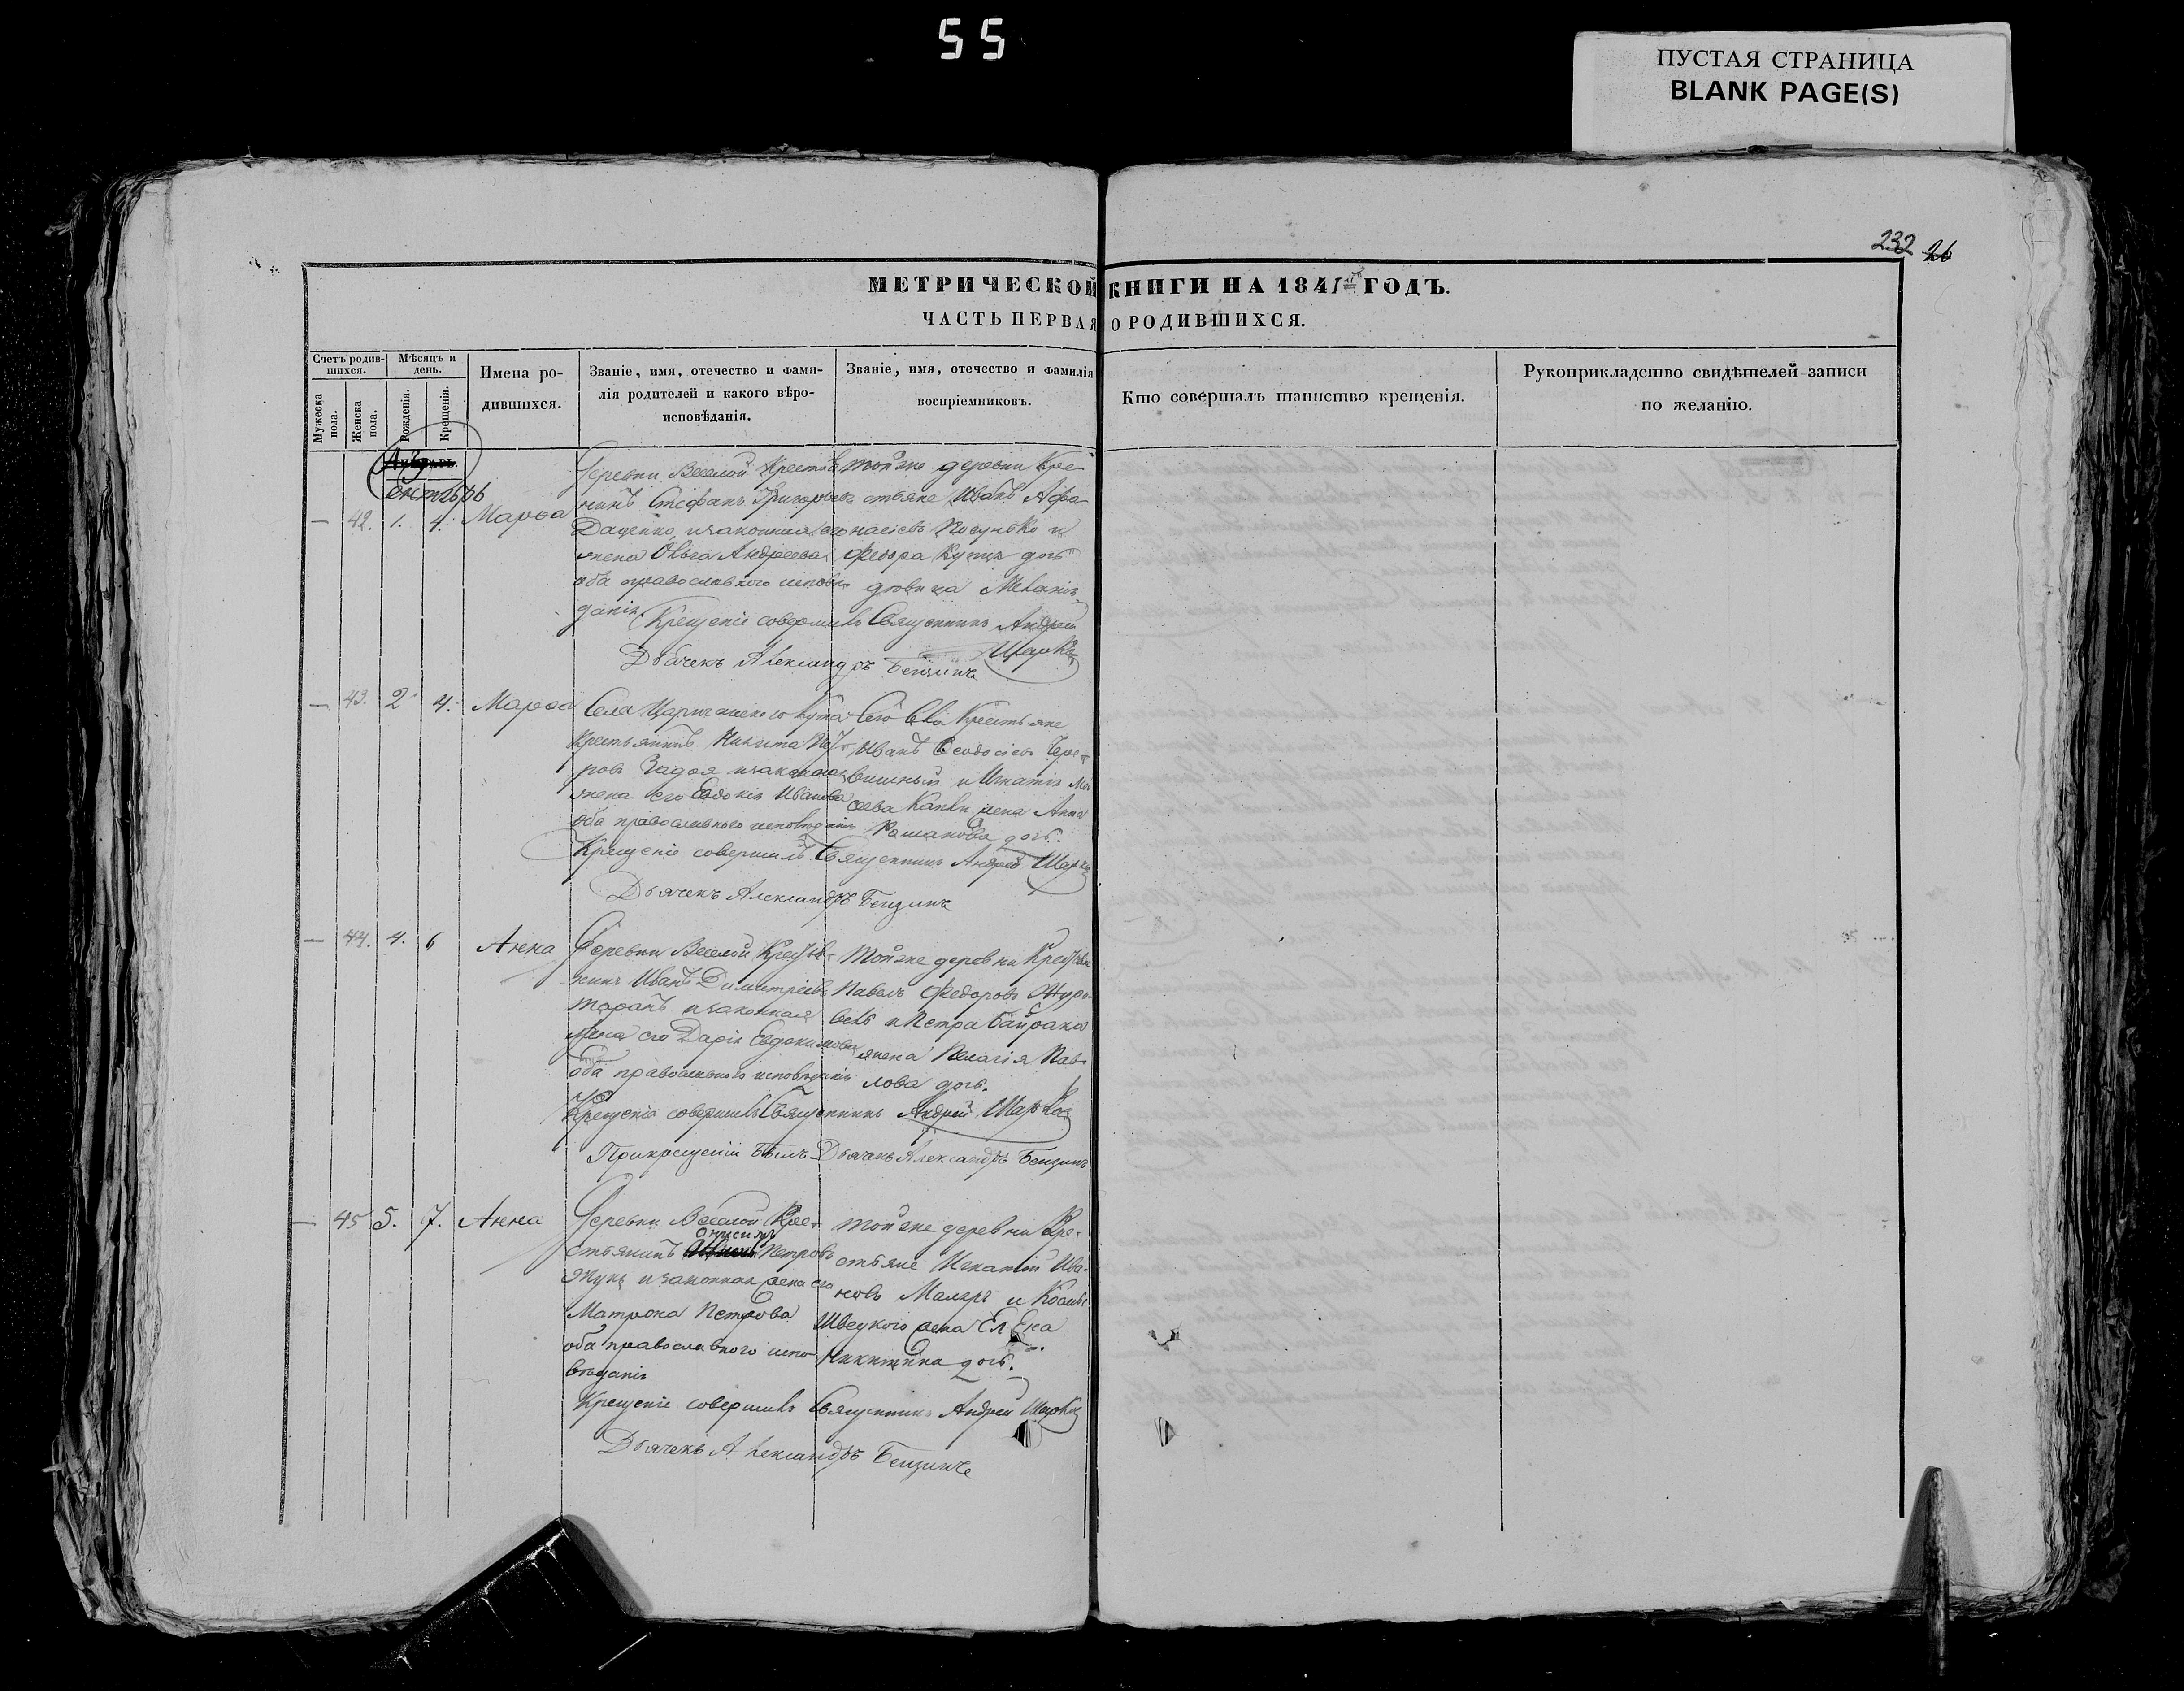 55
ПУСТАЯ СТРАНИЦА
BLANK PAGE(S)
232 26
МЕТРИЧЕСКОЙ КНИГИ НА 1841 ГОДЪ.
ЧАСТЬ ПЕРВАЯ О РОДИВШИХСЯ.
Счетъ родив-
шихся.
Мужеска пола.
Женска пола.
Мѣсяцъ и
день.
Рожденія.
Крещенія.
Имена ро-
дившихся.
Званіе, имя, отечество и фами-
лія родителей и какого вѣро-
исповѣданія.
Званіе, имя, отечество и фамилія
воспріемниковъ.
Кто совершалъ таинство крещенія.
Рукоприкладство свидѣтелей записи
по желанію.
Сентябрь
— 42. 1. 4. Марѳа
Деревни Веселой Крестья
нинъ Стефанъ Григорьевъ
Даценко и законная его
жена Ольга Андреева
оба православного исповѣ
данія
той же деревни Кре
стьяне Иванъ Афа
насіевъ и
Федора дочь
дѣвица Меланія
Крещеніе совершилъ Священникъ Андрей
Шарко
Дьячекъ Александръ
— 43. 2 4. Марѳа
Села Царичанского Кута
Крестьянинъ Никита Пет
ровъ Задоя и законная
жена его Евдокія Иванова
оба православного исповѣданія
Сего Села Крестьяне
Иванъ Ѳеодосіевъ Чере
вишный и Игнатія
сеева жена Анна
Романова дочь.
Крещеніе совершилъ Священникъ Андрей Шарко
Дьячекъ Александръ
— 44. 4. 6 Анна
Деревни Веселой Крестья
нинъ Иванъ Димитріевъ
Таранъ и законная
жена его Дарія Евдокимова
оба православного исповѣданія
Той же деревни Крестьяне
Павелъ Федоровъ Жура
вель и Петра Байрака
жена Пелагія Пав
лова дочь.
Крещеніе совершилъ Священникъ Андрей Шарко
При крещеніи былъ Дьячекъ Александръ
— 45 5. 7. Анна
Деревни Веселой Кре
Онисимъ
стьянинъ Петровъ
Жукъ и законная жена его
Матрона Петрова
оба православного испо
вѣданія
той же деревни Кре
стьяне Игнатій Ива
новъ Маляръ и Косьмы
Швецкого жена Елена
Никитина дочь.
Крещеніе совершилъ Священникъ Андрей Шарко
Дьячекъ Александръ